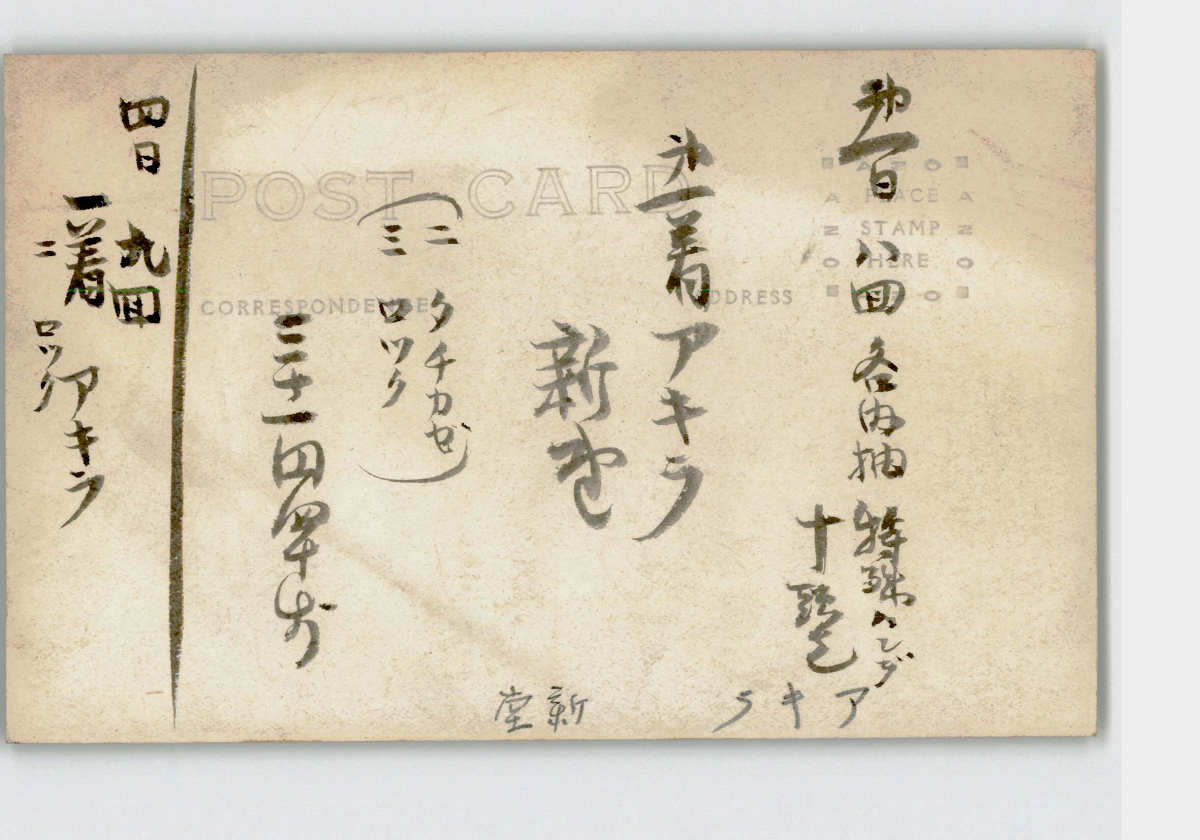 第一日 八回 各内抽 特殊ハンデ
十頭立
第一着 アキラ
新堂
(二 タチカゼ
三 ロツク)
三二十一 四四十
四日 九回
一着 アキラ
二 ロツク
アキラ
新堂
POST CARD
CORRESPONDENCE
ADDRESS
PLACE
STAMP
HERE
AZO